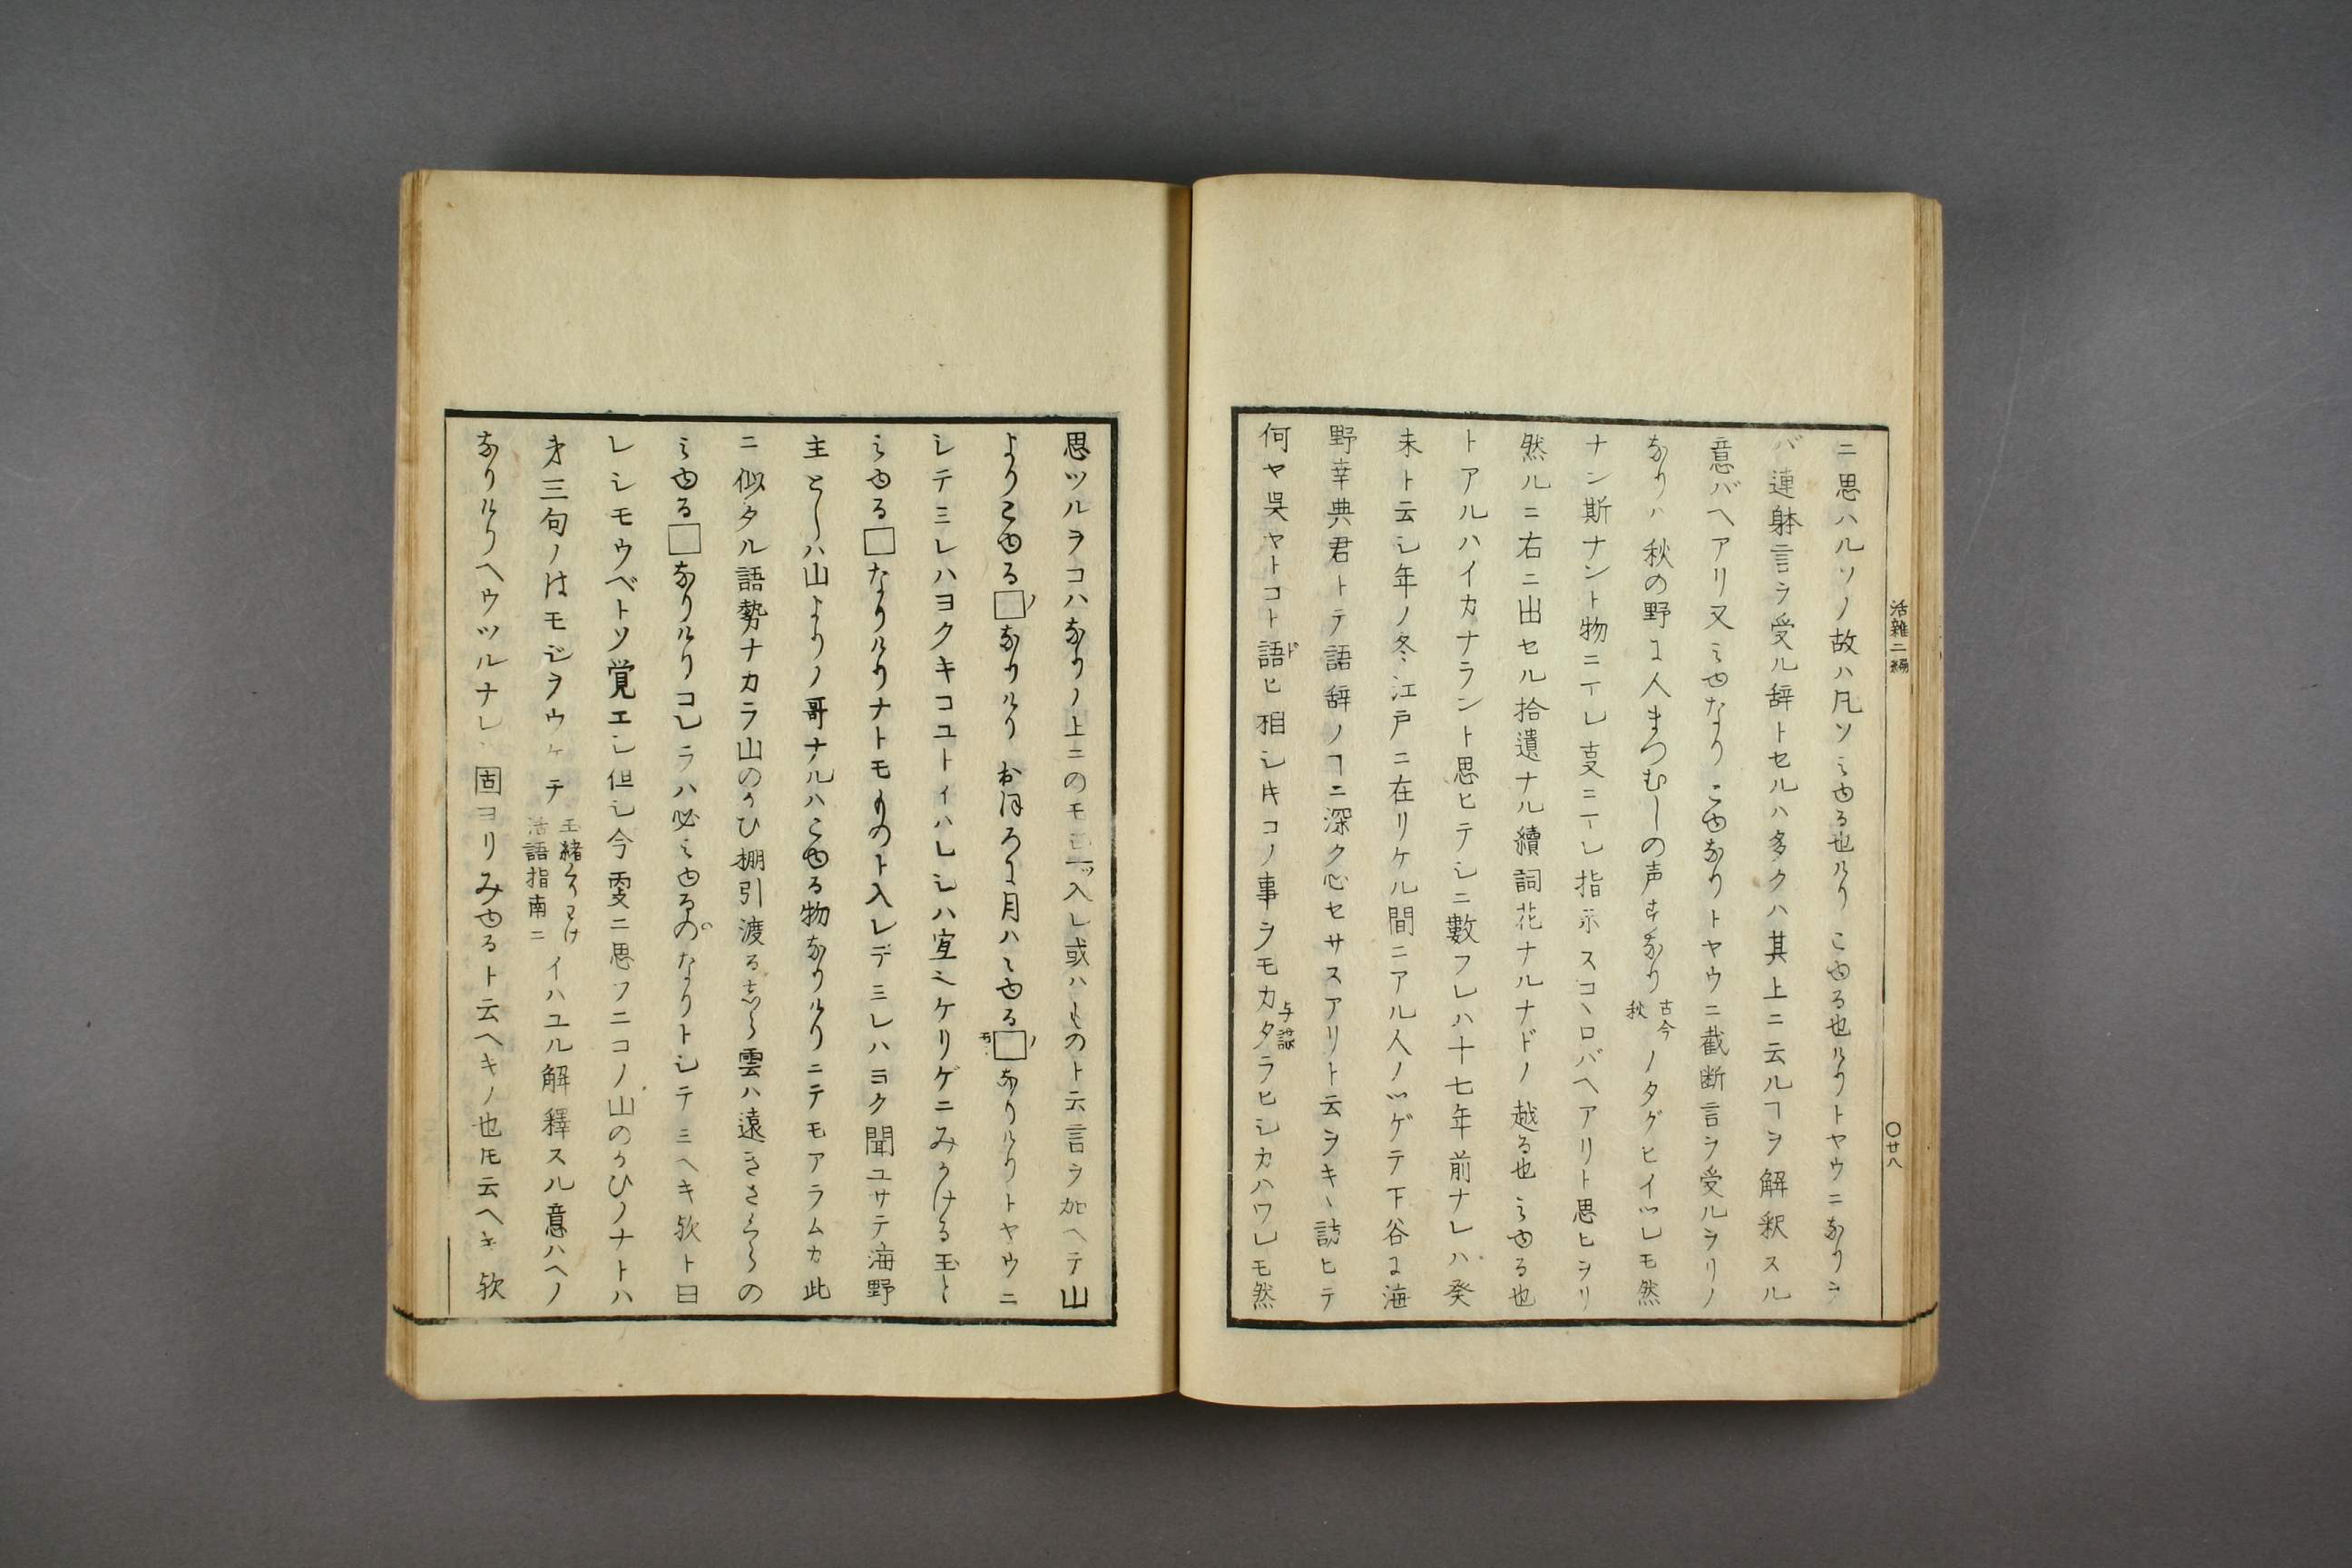 活雜二編
〇廿八
ニ思ハルソノ故ハ凡ソミゆる也けり こゆる也けりトヤウニなりヲ
バ連躰言ヲ受ル辞トセルハ多クハ其上ニ云ルヿヲ解釈スル
意バヘアリ又ミゆなり こゆなりトヤウニ截断言ヲ受ルヲリノ
なりハ秋の野に人まつむしの声すなり古今秋ノタグヒイヅレモ然
ナン斯ナント物ニマレ支ニマレ指示スコヽロバヘアリト思ヒヲリ
然ルニ右ニ出セル拾遺ナル續詞花ナルナドノ越る也ミゆる也
トアルハイカナラント思ヒテシニ數フレハ十七年前ナレハ癸
未ト云シ年ノ冬江戸ニ在リケル間ニアル人ノツゲテ下谷に海
野幸典君トテ語辞ノヿニ深ク心セサスアリト云ヲキヽ訪ヒテ
何ヤ呉ヤトコト語ドヒ相シキコノ事ヲモカタラヒシカハワレモ然
思ツルヲコハなりノ上ニのモジ一ツ入レ或ハものト云言ヲ加ヘテ山
よりこゆる□ノなりけり おほろに月ハミゆる□ノなりけりトヤウニ
シテミレハヨクキコユトイハレシハ宜ヘケリゲニみかける玉と
ミゆる□なりけりナトモものト入レデミレハヨク聞ユサテ海野
主とハ山よりノ哥ナルハこゆる物なりけりニテモアラムカ此
ニ似タル語勢ナカラ山のかひ棚引渡る志ら雲ハ遠きさくらの
ミゆる□なりけりコレラハ必ミゆるのなりトシテミヘキ欤ト曰
レシモウベトソ覚エシ但シ今雯ニ思フニコノ山のかひノナトハ
才三句ノはモジヲウケテ 玉緒くりわけ 活語指南ニ イハユル解釋スル意ハヘノ
なりけりヘウツルナレ固ヨリみゆるト云ヘキノ也トモ云ヘキ欤